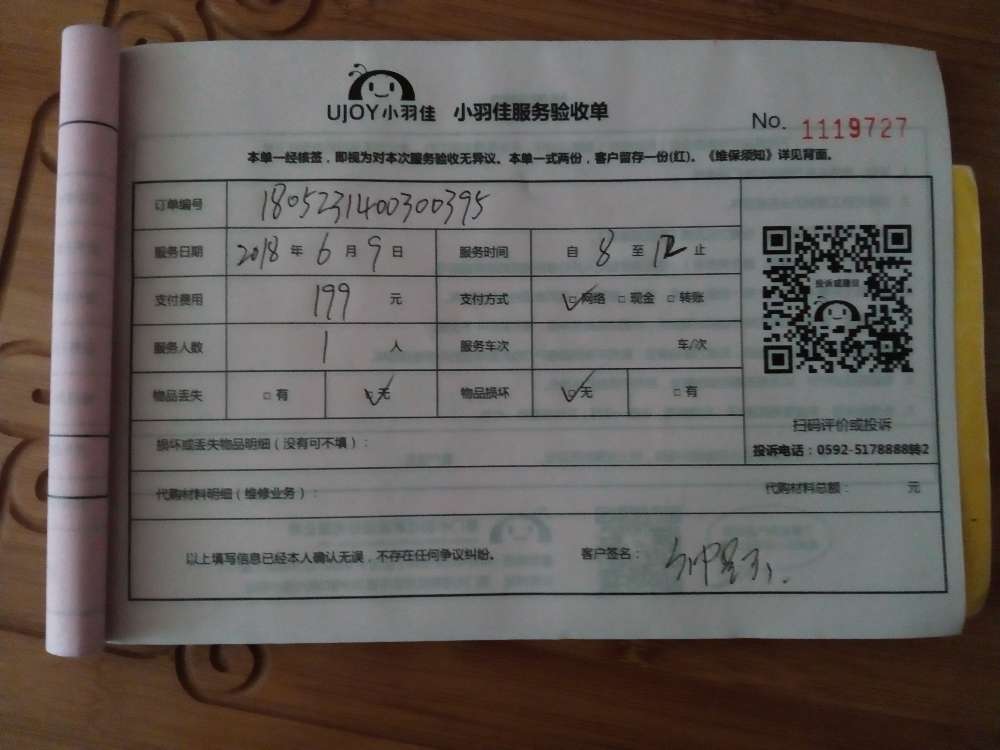 UJOY小羽佳 小羽佳服务验收单
No. 1119727
本单一经核签，即视为对本次服务验收无异议。本单一式两份，客户留存一份(红)。《维保须知》详见背面。
订单编号 1805231400300395
服务日期 2018 年 6 月 9 日 服务时间 自 8 至 12 止
支付费用 199 元 支付方式 □网络 □现金 □转账
服务人数 1 人 服务车次 车/次
物品丢失 □有 □无 物品损坏 □无 □有
投诉或建议
扫码评价或投诉
投诉电话：0592-5178888转2
损坏或丢失物品明细（没有可不填）：
代购材料明细（维修业务）： 代购材料总额： 元
以上填写信息已经本人确认无误，不存在任何争议纠纷。 客户签名：